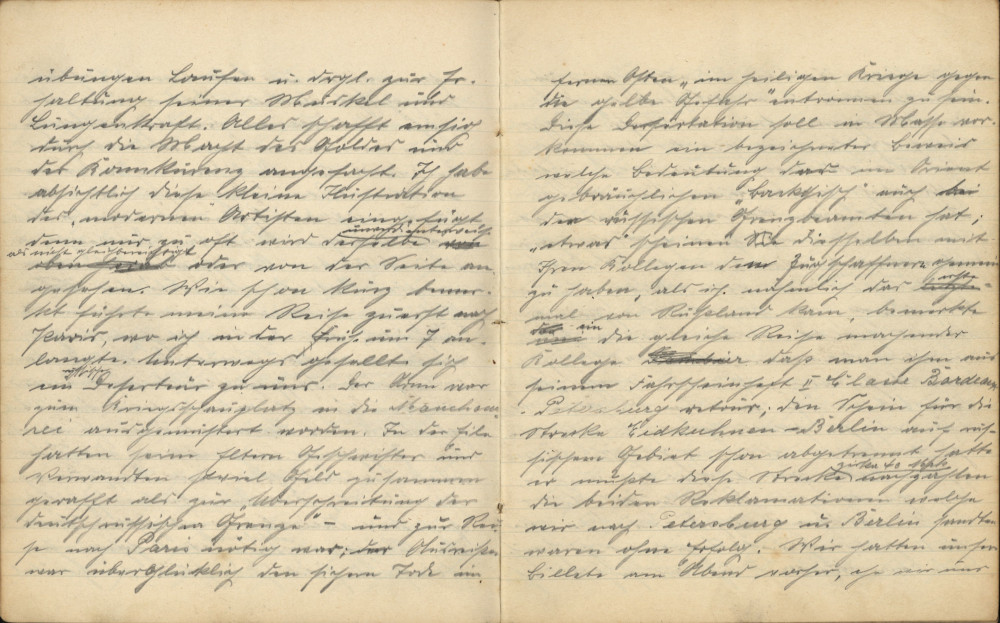 übungen Laufen u. drgl. zur Er-
haltung seiner Muskel und
Lungenkraft. Alles schafft emsig
durch die Macht des Goldes und
der Konnkurenz angefacht. Ich habe
absichtlich diese kleine Ilustration
des „modernen“ Artisten eingefügt
denn nur zu oft wird derselbe
als nicht gleichberechtigt
oder von der Seite an-
gesehen. Wie schon kurz bemer-
kt führte meine Reise zuerst nach
Paris, wo ich in der Früh um 7 an-
langte. Unterwegs gesellte sich
ein Deserteur zu uns. Der Arme war
zum Kriegsschauplatz in die Mandchu-
rei ausgemustert worden. In der Eile
hatten seine Eltern Geschwister und
Verwandten soviel Geld zusammen
gerafft als zur „Uberschreitung der
deutschrussischen Grenze“ – und zur Rei-
se nach Paris nötig war; der Ausreißer
war überglücklich den sichern Tode im
fernen Osten „im heiligen Kriege gegen
die gelbe Gefahr“ entronnen zu sein.
Diese Desertation soll in Masse vor-
kommen ein bezeichneter Beweis
welche Bedeutung das im Orient
gebräuchlichen „Backschisch“ auch bei
den russischen Grenzbeamten hat;
„etwas“ scheinen die diesselben mit
Ihren Kollegen den Zugschaffnern gemein
zu haben, als ich nähmlich das erste
mal von Rußland kam, bemerkte
ein die gleiche Reise machender
Kollege daß man ihm aus
seinem Fahrscheinheft II Classe Bordeaux
- Petersburg retour, den Schein für die
Strecke Eidkuhnen – Berlin auf rus-
sischem Gebiet schon abgetrennt hatte
er mußte diese Strecke nachzahlen
die beiden Reklamationen welche
wir nach Petersburg u. Berlin sandten
waren ohne Erfolg. Wir hatten unsere
Billete am Abend vorher, ehe wir uns